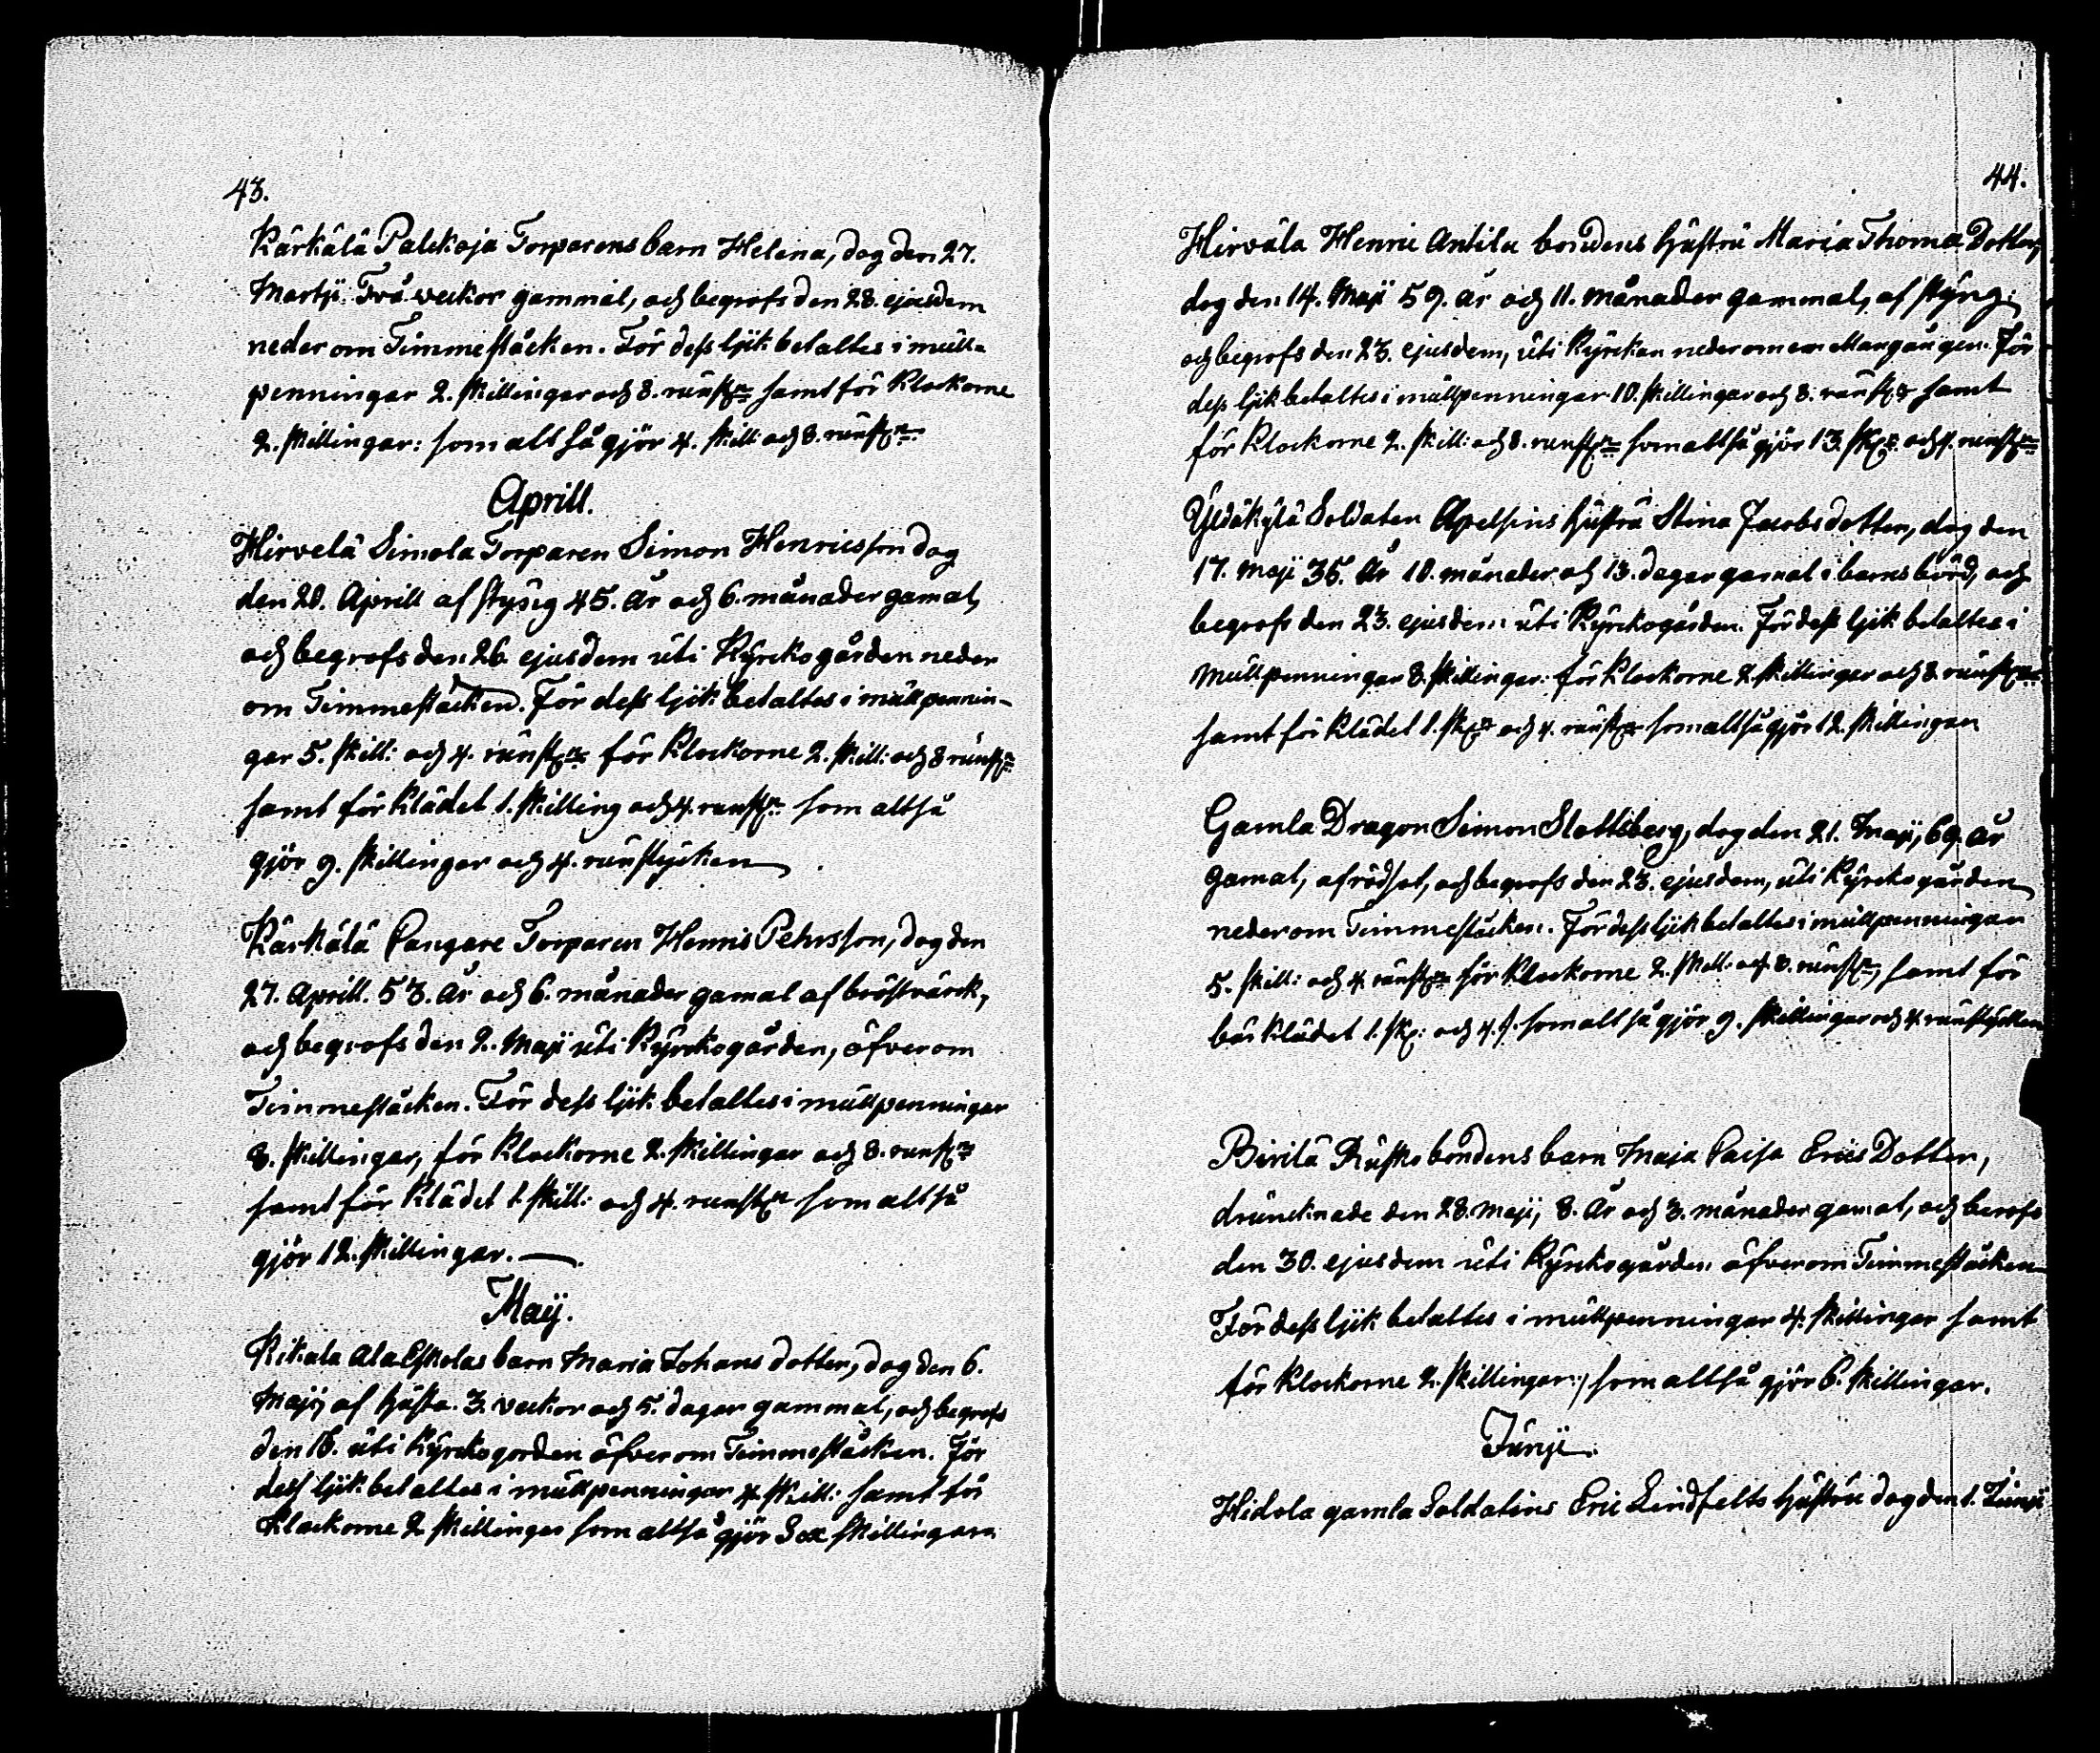 43.
Kärkälä Palckoja Torparens barn Helena, dog den 27.
Martji. Två weckor gammal, och begrofs den 28. ejusdem
neder om Timmestäcken. För dess lijk betaltes i mull-
penningar 2. skillingar och 8. runst:r samt för Klockorne
2. skillingar: som altså gjör 4. skill: och 8. runst:r
Aprill.
Hirvelä Simola Torparen Simon Henricsson dog
den 20. Aprill af styng 45. år och 6. månader gamal,
och begrofs den 26. ejusdem uti Kyrckogården neder
om Timmestäcken. För dess lijk betaltes i mullpennin-
gar 5. skill: och 4. runst:r för Klockorne 2. skill: och 8 runst:r
samt för Klädet 1. skilling och 4. runst:r som altså
gjör 9. skillingar och 4. runstycken
Kärkälä Pangare Torparen Henric Pehrsson, dog den
27. Aprill. 53. år och 6. månader gamal af bröstvärck,
och begrofs den 2. Maji uti Kyrckogården, öfver om
Timmestäcken. För dess lijk betaltes i mullpenningar
8. skillingar, för Klockorne 2. skillingar och 8. runst:r
samt för Klädet 1. skill: och 4. runst:r som altså
gjör 12. skillingar.
Maij.
Kikala Ala Eskolas barn Maria Johans dotter, dog den 6.
Maji, af hosta. 3. veckor och 5. dagar gammal, och begrofs
den 16. uti Kyrckogorden öfver om Timmestäcken. För
dess lijk betaltes i mullpenningar 4. skill: samt för
Klockorne 2 skillingar som altså gjör Sex skillingar
44.
Hirvälä Henric Antila bondens hustru Maria Thomæ Dotter,
dog den 14. Maji 59. år och 11. månader gammal, af styng:
och begrofs den 23. ejusdem, uti Kyrckan nederom Mangången. För
dess lijk betaltes i mullpenningar 10. skillingar och 8. runst:r samt
för Klockorne 2. skill: och 8. runst:r som altså gjör 13. sk:r och 4. runst:r
Yldäkylä Soldaten Apelsins hustru Stina Jacobs dotter, dog den
17. Maji 35. år 10. månader och 13. dagar gamal i barnsbörd, och
begrofs den 23. ejusdem uti Kyrckogården. För dess lijk betaltes i
mullpenningar 8. skillingar: för Klockorne 2. skillingar och 8. runst:r
samt för Klädet 1. sk:r och 4. runst:r som altså gjör 12. skillingar
Gamla Dragon Simon Slottsberg, dog den 21. Maji, 69. år
gamal, af rödsot, och begrofs den 23. ejusdem, uti Kyrckogården
neder om Timmestäcken. För dess lijk betaltes i mullpenningar
5. skill: och 4. runst:r för Klockorne 2. skill: och 8. runst:r, samt för
bårklädet 1. sk: och 4. s. som altså gjör 9. skillingar och 4. runstycken
Birilä Rusko bondens barn Maja Caisa Erics Dotter,
druncknade den 28. Maji, 8. år och 3. månader gamal, och berofs
den 30. ejusdem uti Kyrckogården öfver om Timmestäcken
För dess lijk betaltes i mullpenningar 4. skillingar samt
för Klockorne 2. skillingar:, som altså gjör 6. skillingar.
Junji.
Hidola gamla Soldatens Eric Lindfelts hustru dog den 1. Junji